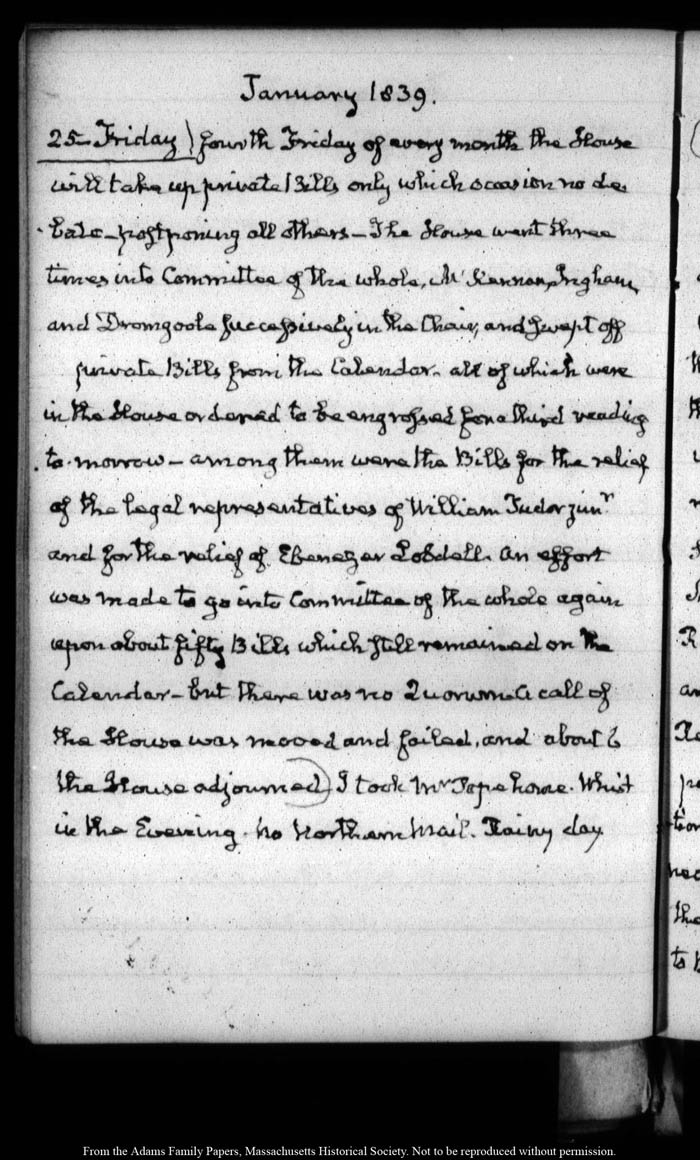 January 1839.
25. Friday) fourth Friday of every month the House
will take up private Bills only which occasion no de
-bate—postponing all others—The House went three
times into Committee of the whole, Mc Kennan, Ingham,
and Dromgoole successively in the Chair, and swept off
private Bills from the Calendar. all of which were
in the House ordered to be engrossed for a third reading
to-morrow—among them were the Bills for the relief
of the legal representatives of William Tudor junr
and for the relief of Ebenezer Lobdell. An effort
was made to go into Committee of the whole again
upon about fifty Bills which still remained on the
Calendar—but there was no Quorum. A call of
the House was moved and failed, and about 6
the House adjourned) I took Mrs Pope home. Whist
in the Evening. No Northern Mail. Rainy day
From the Adams Family Papers, Massachusetts Historical Society. Not to be reproduced without permission.